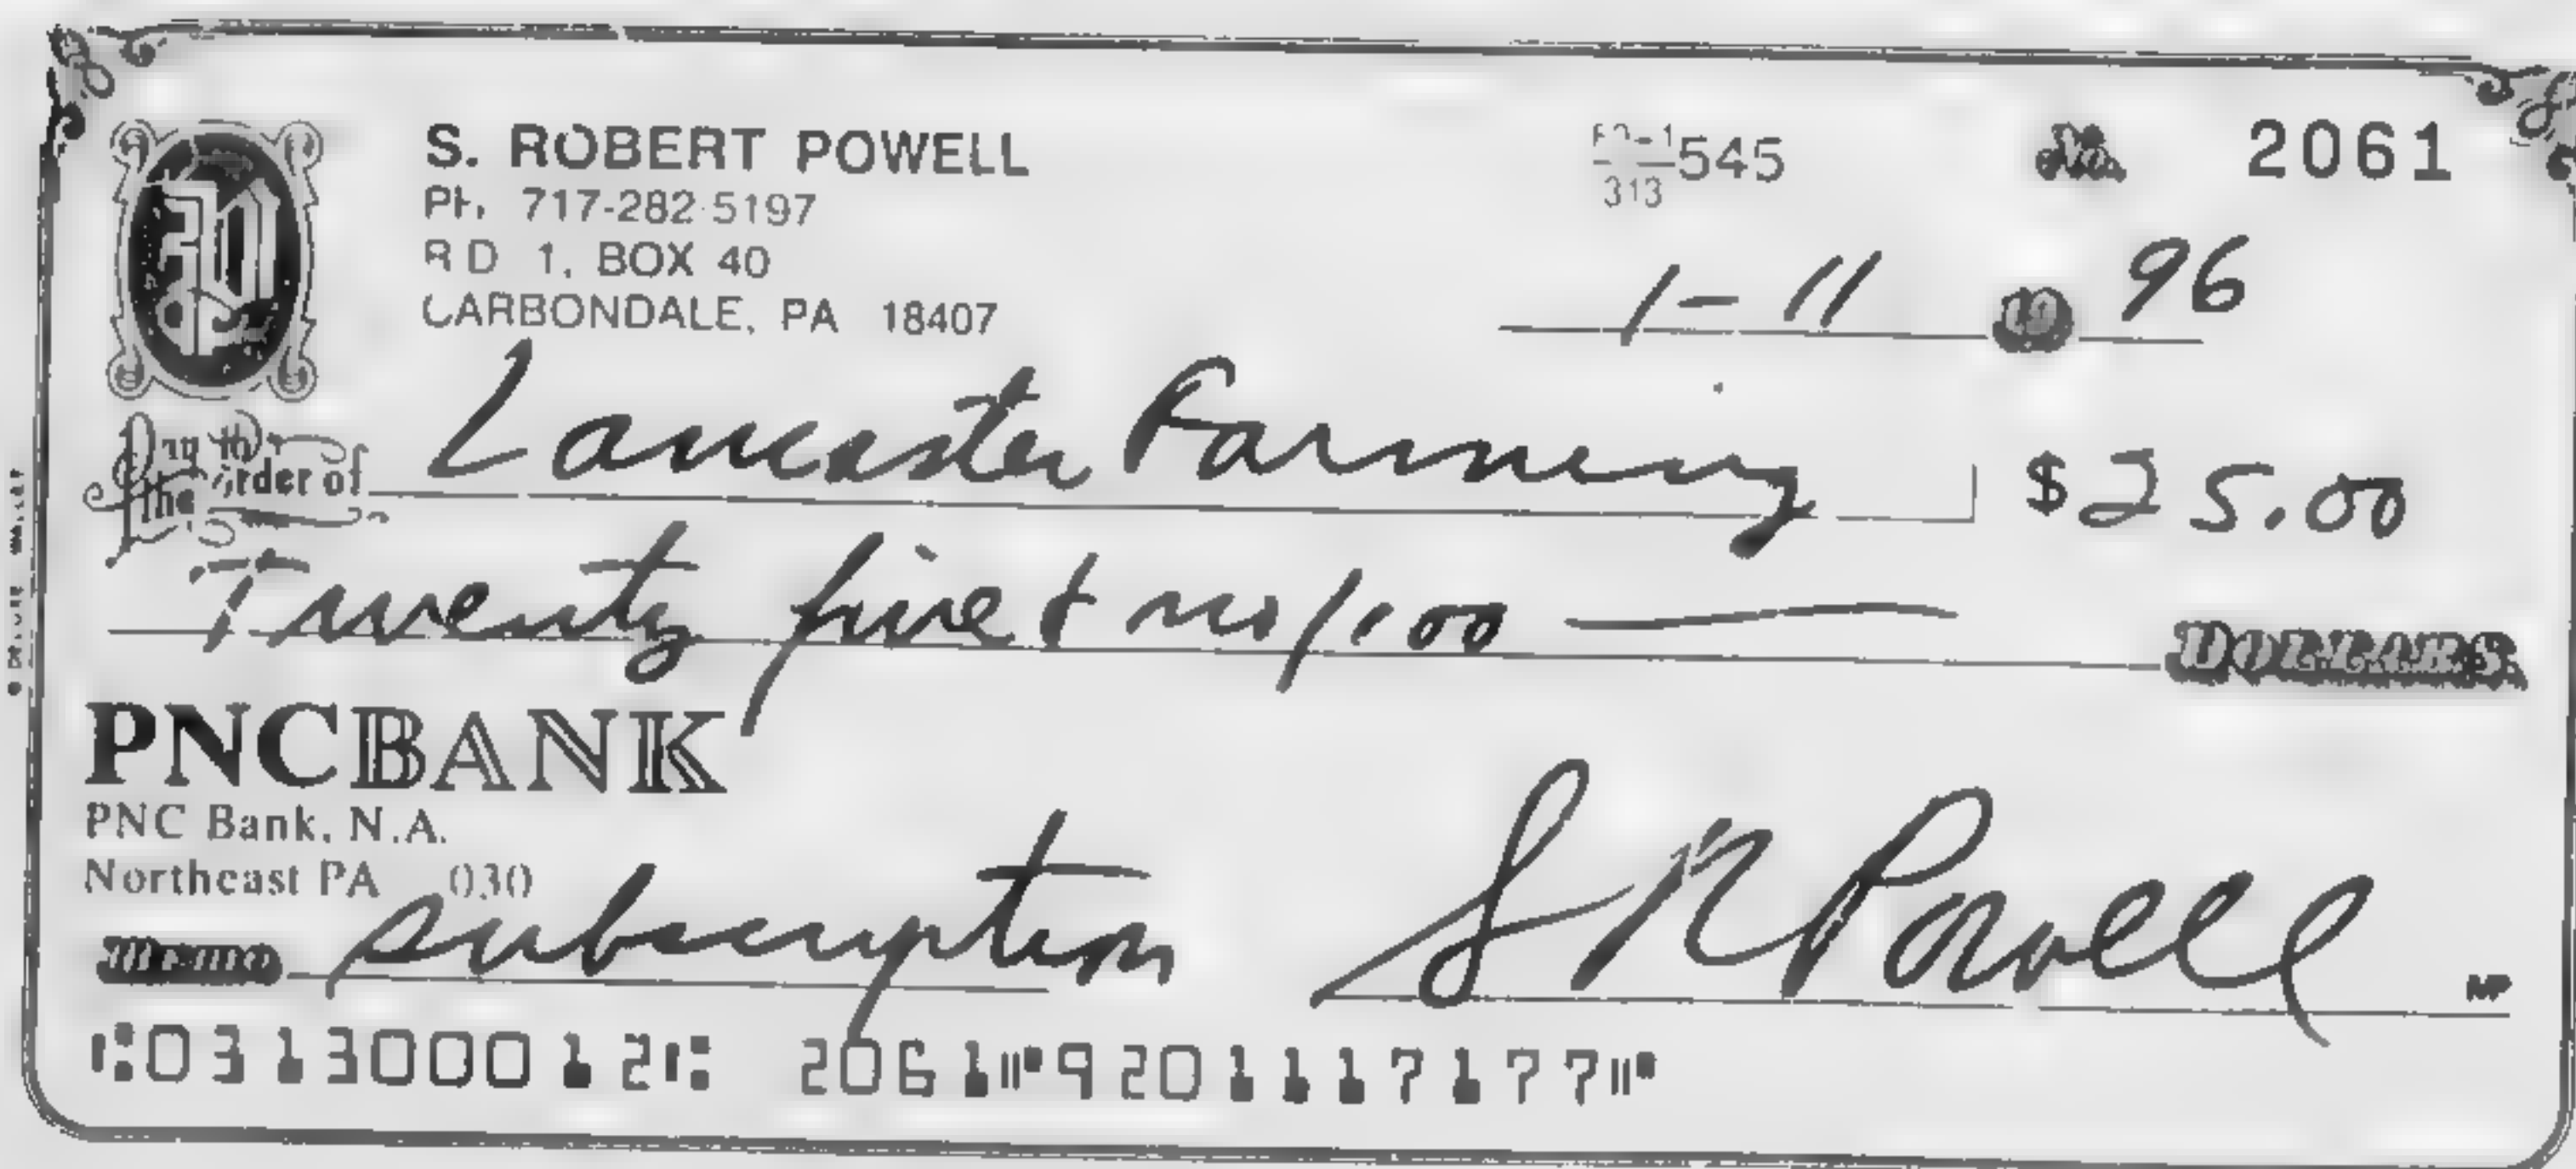 S. ROBERT POWELL
Ph. 717-282-5197
R D 1, BOX 40
CARBONDALE, PA 18407
313 545
No. 2061
1-11 19 96
Pay to the order of Lancaster Farming $25.00
Twenty five & no/100 DOLLARS
PNCBANK
PNC Bank, N.A.
Northeast PA 030
Memo subscription S R Powell
MP
⑆031300012⑆ 2061⑈9201117177⑈